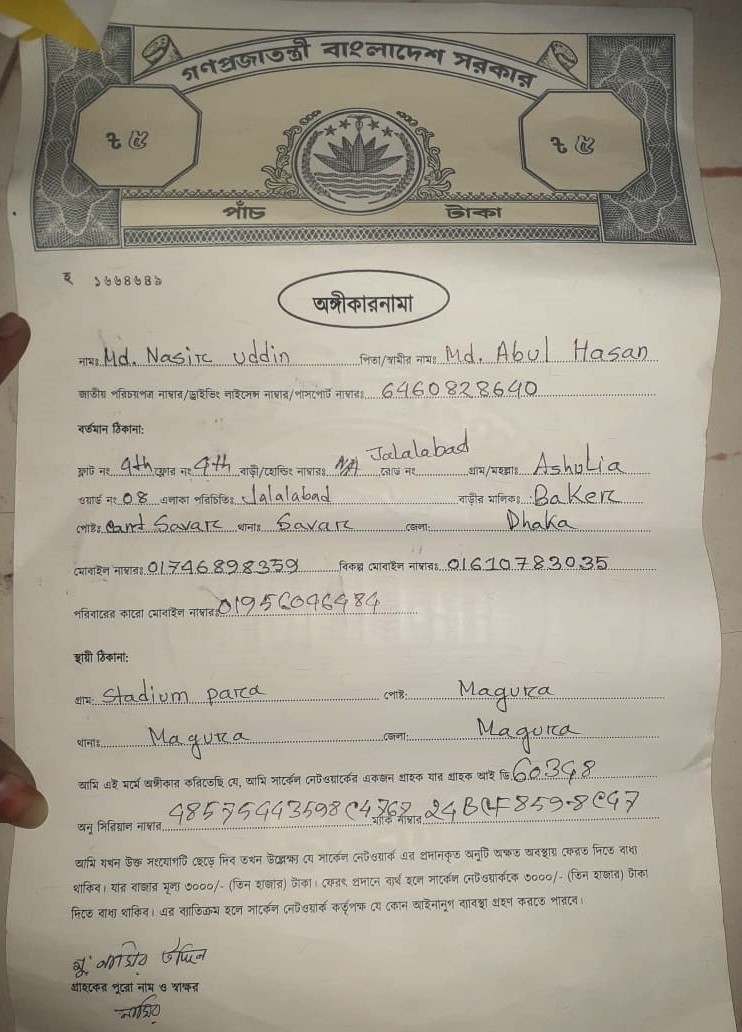 গণপ্রজাতন্ত্রী বাংলাদেশ সরকার
৳ ৫ ৳ ৫
পাঁচ টাকা
হ ১৬৬৪৬৪৯
অঙ্গীকারনামা
নামঃ Md. Nasir uddin পিতা/স্বামীর নামঃ Md. Abul Hasan
জাতীয় পরিচয়পত্র নাম্বার/ড্রাইভিং লাইসেন্স নাম্বার/পাসপোর্ট নাম্বারঃ 6460828640
বর্তমান ঠিকানা:
ফ্লাট নং 4th ফ্লোর নং 4th বাড়ী/হোল্ডিং নাম্বারঃ N/A রোড নং Jalalabad গ্রাম/মহল্লাঃ Ashulia
ওয়ার্ড নং 08 এলাকা পরিচিতিঃ Jalalabad বাড়ীর মালিকঃ Baker
পোষ্টঃ Cant Savar থানাঃ Savar জেলা: Dhaka
মোবাইল নাম্বারঃ 01746898359 বিকল্প মোবাইল নাম্বারঃ 01610783035
পরিবারের কারো মোবাইল নাম্বারঃ 01956046484
স্থায়ী ঠিকানা:
গ্রাম: Stadium para পোষ্ট: Magura
থানাঃ Magura জেলা: Magura
আমি এই মর্মে অঙ্গীকার করিতেছি যে, আমি সার্কেল নেটওয়ার্কের একজন গ্রাহক যার গ্রাহক আই ডি 60348
অনু সিরিয়াল নাম্বার 48575443598C4768 ম্যাক নাম্বার
আমি যখন উক্ত সংযোগটি ছেড়ে দিব তখন উল্লেক্ষ্য যে সার্কেল নেটওয়ার্ক এর প্রদানকৃত অনুটি অক্ষত অবস্থায় ফেরত দিতে বাধ্য
থাকিব। যার বাজার মূল্য ৩০০০/- (তিন হাজার) টাকা। ফেরৎ প্রদানে ব্যর্থ হলে সার্কেল নেটওয়ার্ককে ৩০০০/- (তিন হাজার) টাকা
দিতে বাধ্য থাকিব। এর ব্যতিক্রম হলে সার্কেল নেটওয়ার্ক কর্তৃপক্ষ যে কোন আইনানুগ ব্যাবস্থা গ্রহণ করতে পারবে।
মু: নাসির উদ্দিন
গ্রাহকের পুরো নাম ও স্বাক্ষর
নাসির